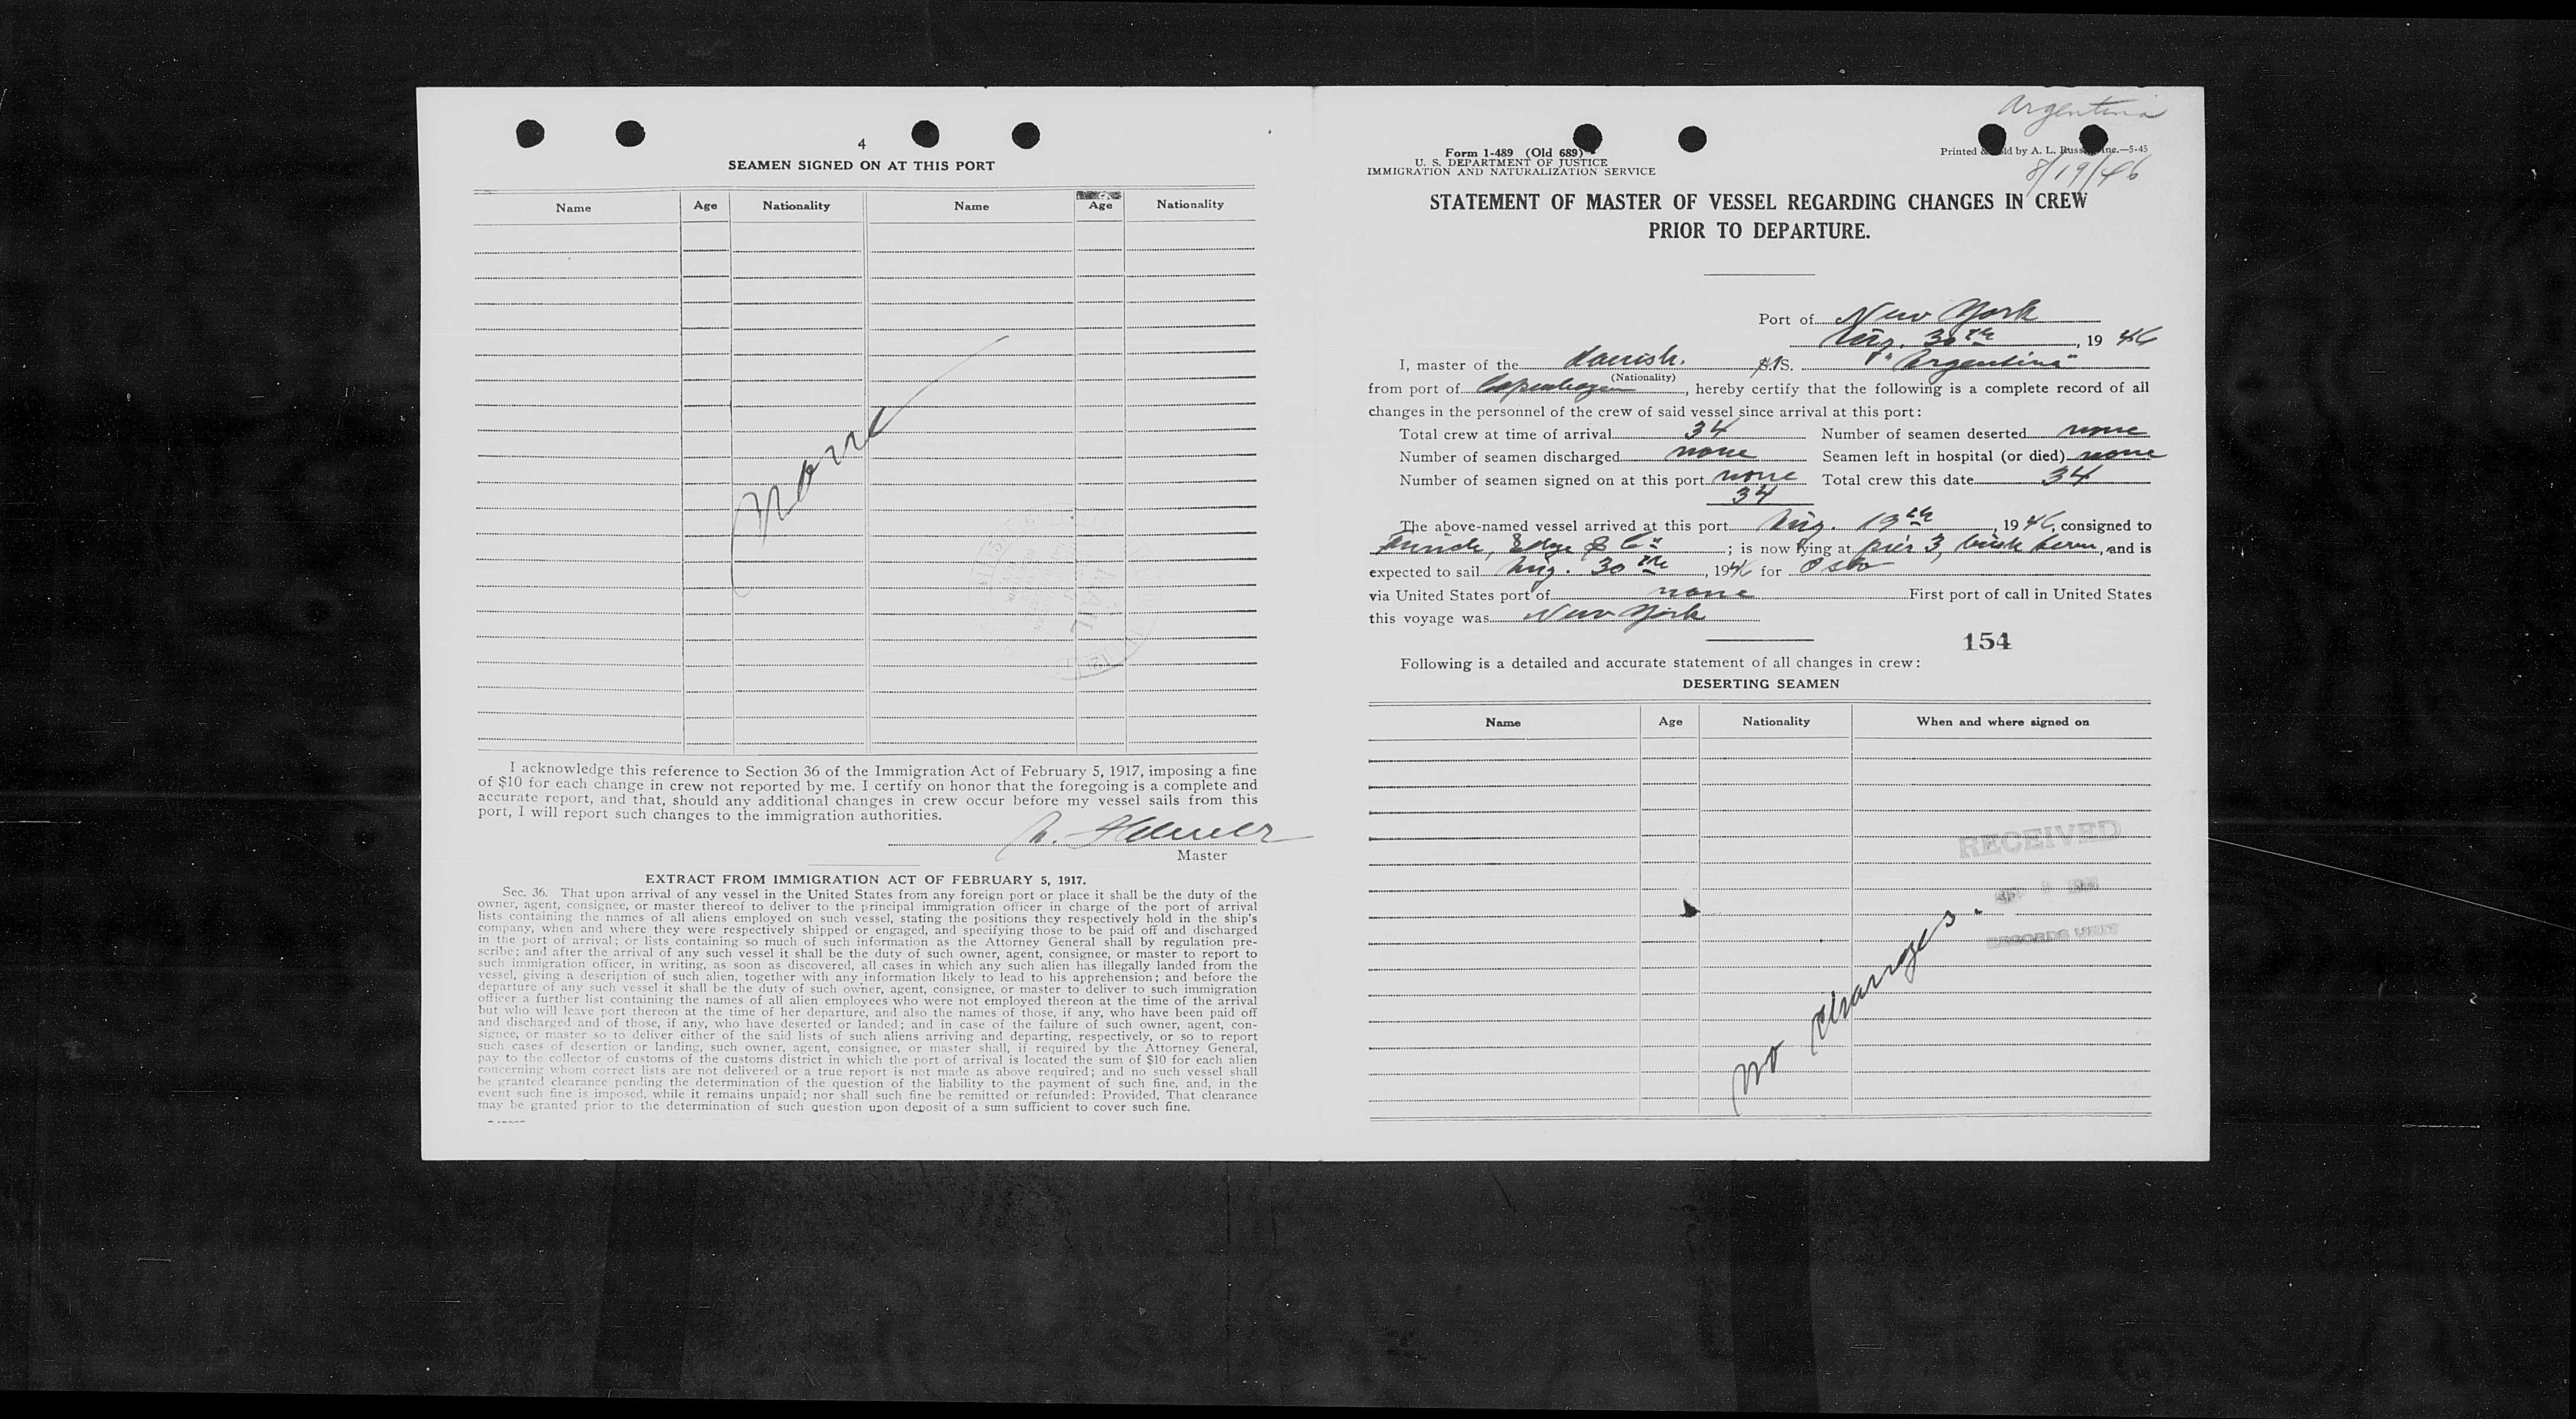 4
SEAMEN SIGNED ON AT THIS PORT
Name Age Nationality Name Age Nationality
None
I acknowledge this reference to Section 36 of the Immigration Act of February 5, 1917, imposing a fine
of $10 for each change in crew not reported by me. I certify on honor that the foregoing is a complete and
accurate report, and that, should any additional changes in crew occur before my vessel sails from this
port, I will report such changes to the immigration authorities.
Master
EXTRACT FROM IMMIGRATION ACT OF FEBRUARY 5, 1917.
Sec. 36. That upon arrival of any vessel in the United States from any foreign port or place it shall be the duty of the
owner, agent, consignee, or master thereof to deliver to the principal immigration officer in charge of the port of arrival
lists containing the names of all aliens employed on such vessel, stating the positions they respectively hold in the ship's
company, when and where they were respectively shipped or engaged, and specifying those to be paid off and discharged
in the port of arrival; or lists containing so much of such information as the Attorney General shall by regulation pre-
scribe; and after the arrival of any such vessel it shall be the duty of such owner, agent, consignee, or master to report to
such immigration officer, in writing, as soon as discovered, all cases in which any such alien has illegally landed from the
vessel, giving a description of such alien, together with any information likely to lead to his apprehension; and before the
departure of any such vessel it shall be the duty of such owner, agent, consignee, or master to deliver to such immigration
officer a further list containing the names of all alien employees who were not employed thereon at the time of the arrival
but who will leave port thereon at the time of her departure, and also the names of those, if any, who have been paid off
and discharged and of those, if any, who have deserted or landed; and in case of the failure of such owner, agent, con-
signee, or master so to deliver either of the said lists of such aliens arriving and departing, respectively, or so to report
such cases of desertion or landing, such owner, agent, consignee, or master shall, if required by the Attorney General,
pay to the collector of customs of the customs district in which the port of arrival is located the sum of $10 for each alien
concerning whom correct lists are not delivered or a true report is not made as above required; and no such vessel shall
be granted clearance pending the determination of the question of the liability to the payment of such fine, and, in the
event such fine is imposed, while it remains unpaid; nor shall such fine be remitted or refunded: Provided, That clearance
may be granted prior to the determination of such question upon deposit of a sum sufficient to cover such fine.
Argentina
Form 1-489 (Old 689)
Printed & by A. L. Inc.—5-45
U. S. DEPARTMENT OF JUSTICE
IMMIGRATION AND NATURALIZATION SERVICE
8/19/46
STATEMENT OF MASTER OF VESSEL REGARDING CHANGES IN CREW
PRIOR TO DEPARTURE.
Port of New York
Aug. 30th, 1946
I, master of the danish. S. "Argentina"
(Nationality)
from port of Copenhagen, hereby certify that the following is a complete record of all
changes in the personnel of the crew of said vessel since arrival at this port:
Total crew at time of arrival 34 Number of seamen deserted none
Number of seamen discharged none Seamen left in hospital (or died) none
Number of seamen signed on at this port none Total crew this date 34
34
The above-named vessel arrived at this port Aug. 19th, 1946, consigned to
Edye & Co; is now lying at pier 3, and is
expected to sail Aug. 30th, 1946 for Oslo
via United States port of none First port of call in United States
this voyage was New York
154
Following is a detailed and accurate statement of all changes in crew:
DESERTING SEAMEN
Name Age Nationality When and where signed on
RECEIVED
RECORDS UNIT
no changes.